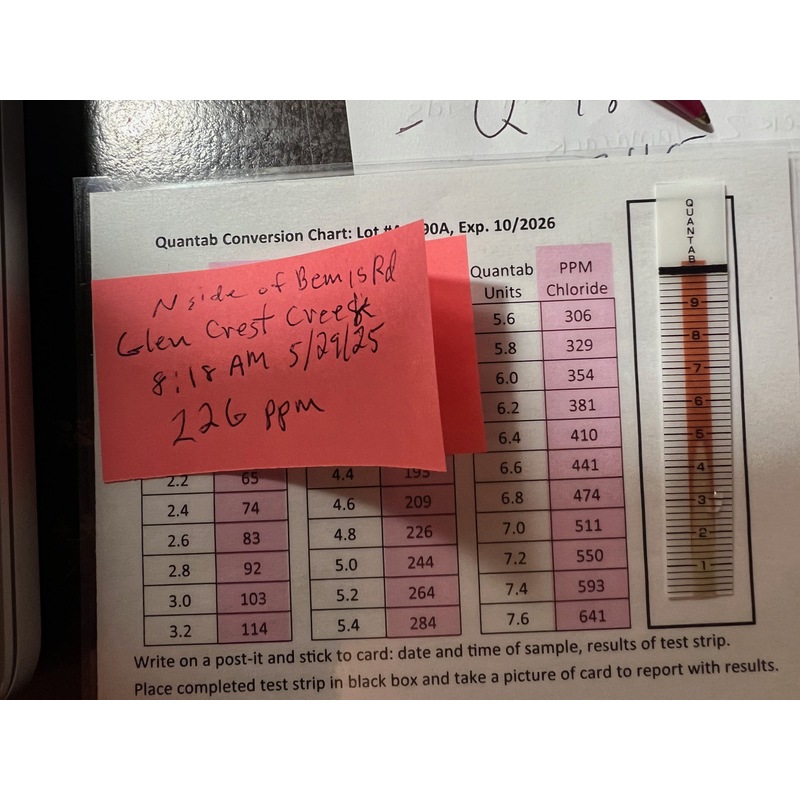 Quantab Conversion Chart: Lot # 90A, Exp. 10/2026
N side of Bemis Rd
Glen Crest Creek
8:18 AM 5/29/25
226 ppm
Quantab Units PPM Chloride
5.6 306
5.8 329
6.0 354
6.2 381
6.4 410
2.2 65 4.4 193 6.6 441
2.4 74 4.6 209 6.8 474
2.6 83 4.8 226 7.0 511
2.8 92 5.0 244 7.2 550
3.0 103 5.2 264 7.4 593
3.2 114 5.4 284 7.6 641
QUANTAB
9
8
7
6
5
4
3
2
1
Write on a post-it and stick to card: date and time of sample, results of test strip.
Place completed test strip in black box and take a picture of card to report with results.